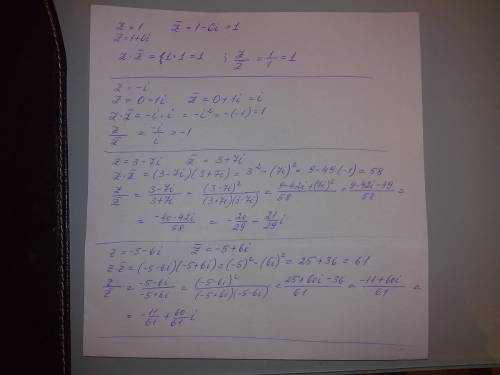 z = 1    z̄ = 1 - 0i = 1
z = 1 + 0i
z · z̄ = 1 · 1 = 1    ; z/z̄ = 1/1 = 1
z = -i
z = 0 - 1i    z̄ = 0 + 1i = i
z · z̄ = -i · i = -i² = -(-1) = 1
z/z̄ = -i/i = -1
z = 3 - 7i    z̄ = 3 + 7i
z · z̄ = (3 - 7i)(3 + 7i) = 3² - (7i)² = 9 - 49·(-1) = 58
z/z̄ = (3-7i)/(3+7i) = (3-7i)²/((3+7i)(3-7i)) = (9-42i+(7i)²)/58 = (9-42i-49)/58 =
= (-40-42i)/58 = -20/29 - 21/29 i
z = -5 - 6i    z̄ = -5 + 6i
z · z̄ = (-5-6i)(-5+6i) = (-5)² - (6i)² = 25 + 36 = 61
z/z̄ = (-5-6i)/(-5+6i) = (-5-6i)²/((-5+6i)(-5-6i)) = (25+60i-36)/61 = (-11+60i)/61 =
= -11/61 + 60/61 i